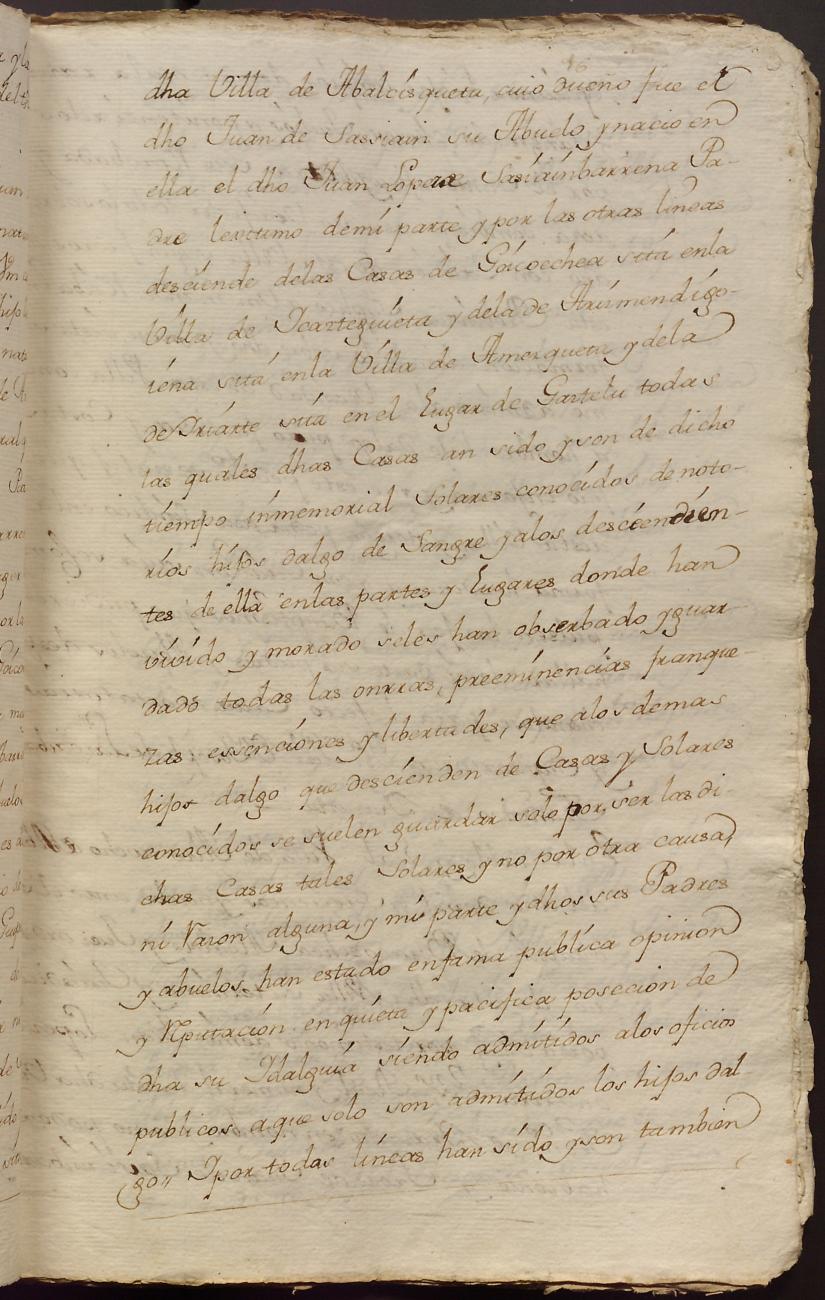 dha Villa de Abalcisqueta, cuio dueño fue el
dho Juan de Sassiain su Abuelo y nacio en
ella el dho Juan Lopez de Sasiainbarrena Pa-
dre lexitimo demi parte y por las otras lineas
desciende delas Casas de Goicoechea sita enla
Villa de Icazteguieta y dela de Arimendigo-
iena sita enla Villa de Amezqueta y dela
de Vriarte sita en el Lugar de Gaztelu todas
las quales dhas Casas an sido y son de dicho
tiempo inmemorial Solares conocidos de noto-
rios hijos dalgo de Sangre y alos desceendien-
tes de ella enlas partes y Lugares donde han
vivido y morado seles han obserbado y guar-
dado todas las onrras, preeminencias franque-
zas essenciones y libertades, que alos demas
hijos dalgo que descienden de Casas y Solares
conocidos se suelen guardar solo por ser las di-
chas Casas tales Solares y no por otra causa,
ni Razon alguna, y mi parte y dhos sus Padres
y abuelos han estado enfama publica opinion
y Reputacion en quieta y pacifica posecion de
dha su Idalguia siendo admitidos alos oficios
publicos aque solo son admitidos los hijos dal
go, Ipor todas lineas han sido y son tambien